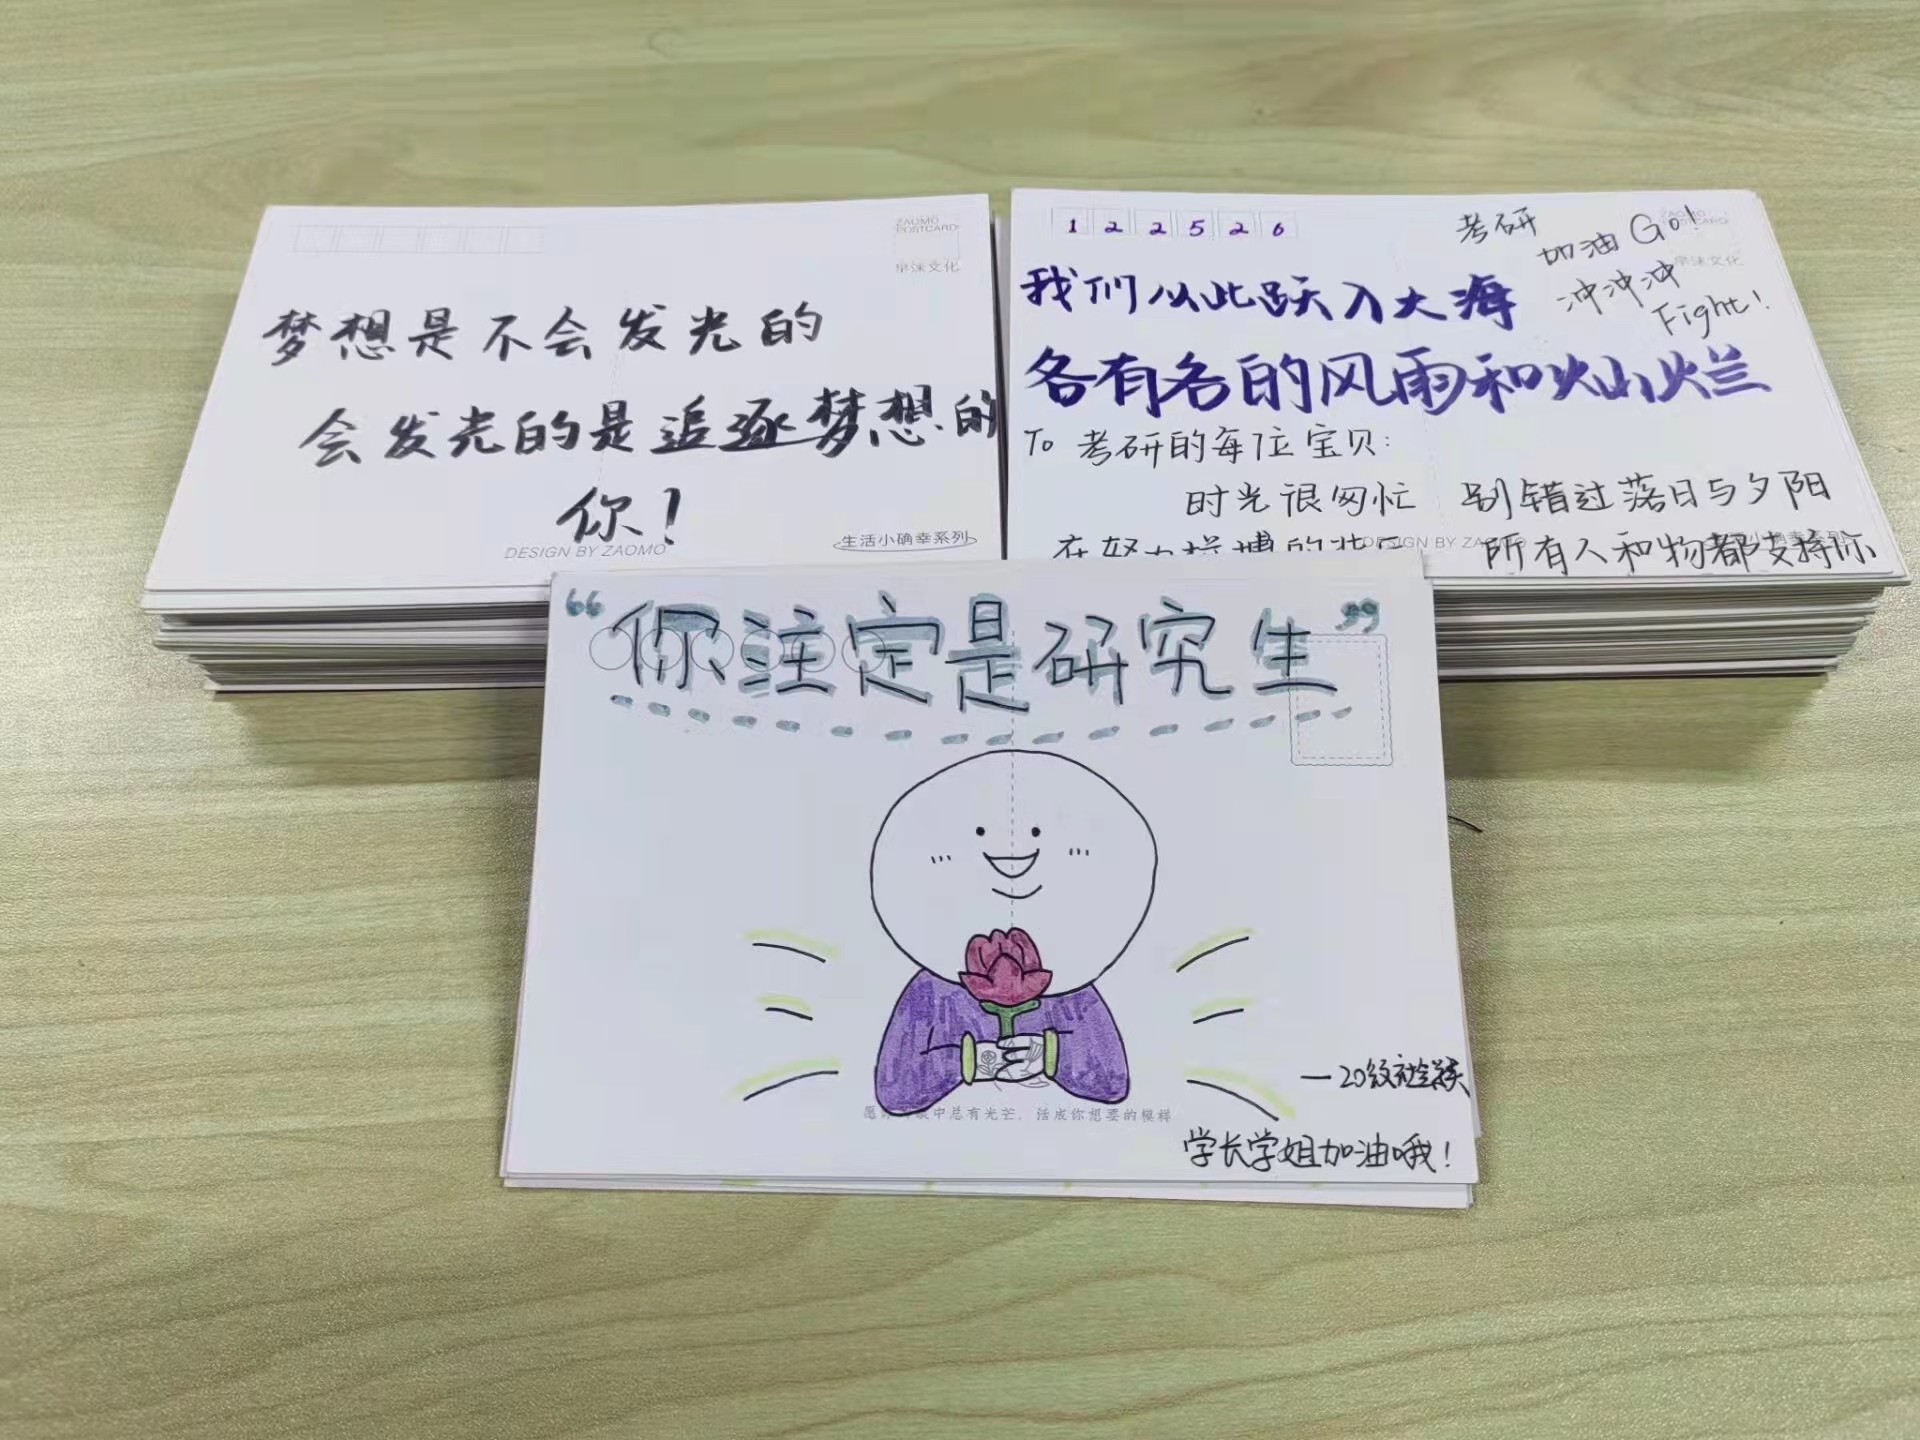 ZAOMO
POSTCARD
早沫文化
梦想是不会发光的
会发光的是追逐梦想的
你!
DESIGN BY ZAOMO
生活小确幸系列
122526
考研
加油 Go!
冲冲冲
Fight!
我们从此跃入大海
各有各的风雨和灿烂
To 考研的每位宝贝:
时光很匆忙 别错过落日与夕阳
所有人和物都支持你
DESIGN BY ZAOMO
“你注定是研究生”
中总有光芒,活成你想要的模样
—20级社会
学长学姐加油哦!